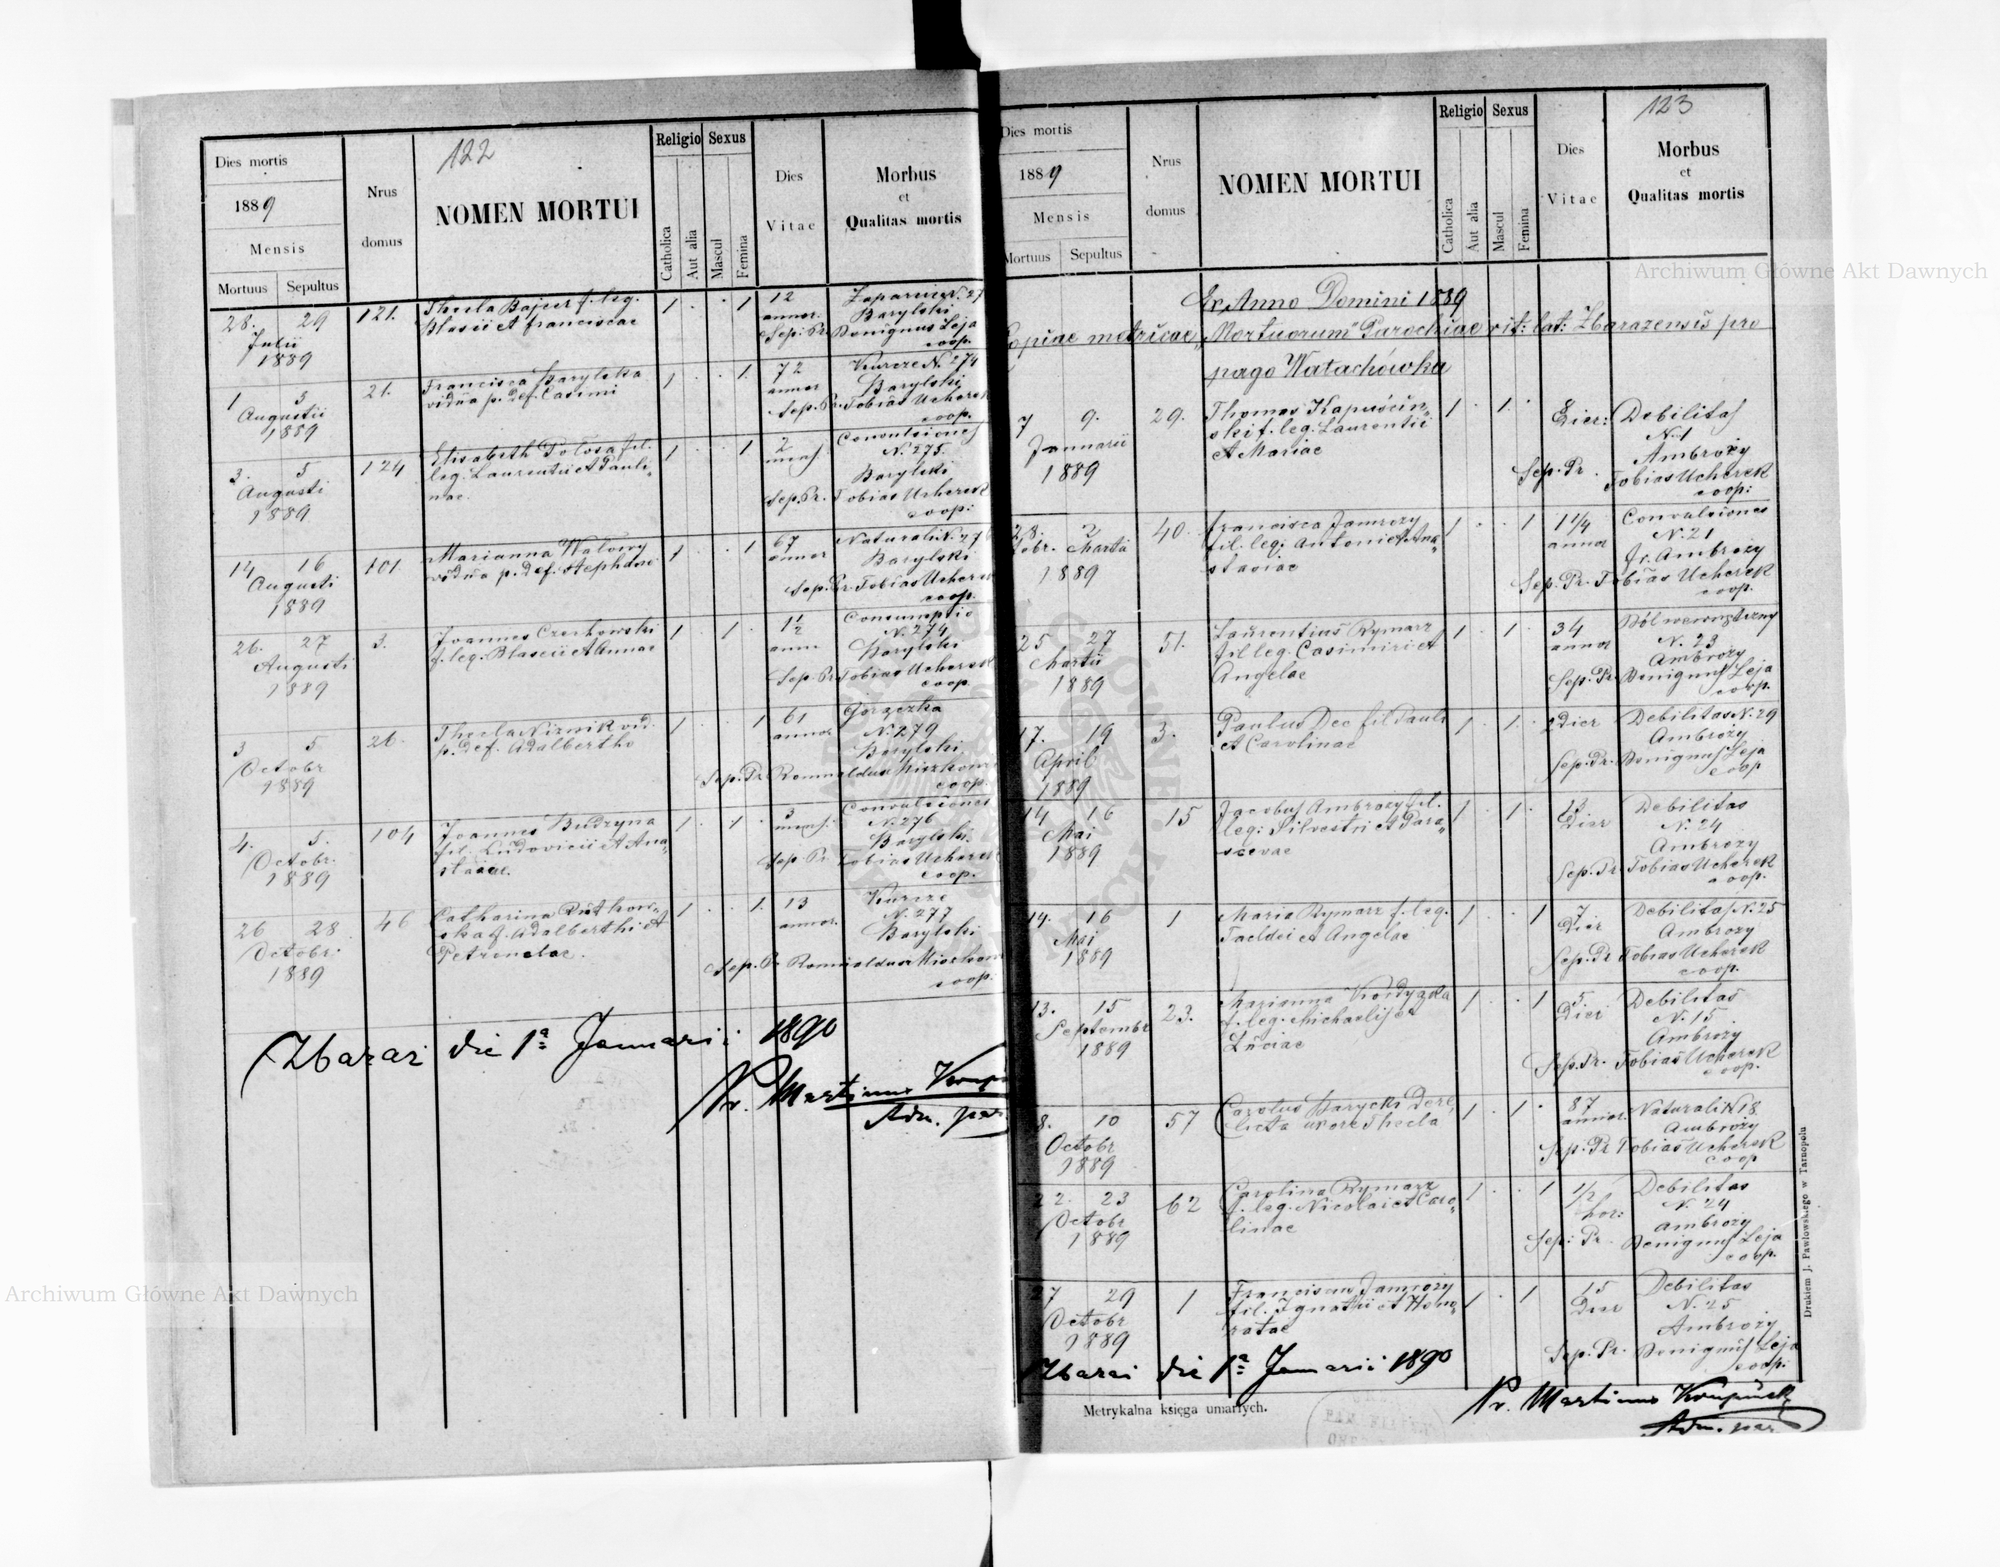 122
Dies mortis
1889
Mensis
Mortuus Sepultus
Nrus
domus
NOMEN MORTUI
Religio
Catholica
Aut alia
Sexus
Mascul
Femina
Dies
Vitae
Morbus
et
Qualitas mortis
28. 29
Julii
1889
121.
Thecla Bajser f. leg.
Blasii et Franciscae
1 . . 1
12
annor.
N. 27
Barylski
Sep. Pr. Benignus Leja
coop.
1 3
Augustii
1889
21.
Francisca Barylska
vidua p. def. Casimi
1 . . 1.
72
annor
N. 274
Barylski
Sep. Pr. Tobias Ucherek
coop.
3. 5
Augusti
1889
124
Elisabeth
leg. Laurentii et Pauli„
nae.
1 . . 1
2
mens
Convulsiones
N. 275.
Barylski
Sep. Pr. Tobias Ucherek
coop:
14 16
Augusti
1889
101
Marianna Walowy
vidua p. def. Stephano
1 . . 1
67
annor
Naturali N. 276
Barylski
Sep. Pr. Tobias Ucherek
coop.
26. 27
Augusti
1889
3.
Joannes Czerkowski
f. leg. Blascii et Annae
1 . 1 .
1 1/2
ann.
Consumptio
N. 274
Barylski
Sep. Pr. Tobias Ucherek
coop.
3 5
Octobr
1889
26.
Thecla Niznik vid.
p. def. Adalbertho
1 . . 1
61
annor
Gorączka
N. 279
Barylski
Sep. Pr. Romualdus
coop.
4. 5.
Octobr.
1889
104
Joannes Budzyna
fil. Ludovicii et Ana„
stasiae.
1 . 1 .
3
mens.
Convulsiones
N. 276
Barylski
Sep. Pr. Tobias Ucherek
coop.
26 28
Octobr.
1889
46
Catharina Rutkow„
ska f. Adalberthi et
Petronelae.
1 . . 1.
13
annor.
N. 277
Barylski
Sep. Pr. Romualdus
coop.
Zbaraz die 1ª Januarii 1890
Pr. Martinus
Adm. par
123
Dies mortis
1889
Mensis
Mortuus Sepultus
Nrus
domus
NOMEN MORTUI
Religio
Catholica
Aut alia
Sexus
Mascul
Femina
Dies
Vitae
Morbus
et
Qualitas mortis
Ex Anno Domini 1889
Copiae metricae „Mortuorum" Parochiae rit: lat: Zbarazensis pro
pago Watachówka
7 9.
Januarii
1889
29.
Thomas Kapuścin„
ski f. leg. Laurentii
et Mariae
1 . 1 .
Debilitas
N. 1
Ambroży
Sep. Pr. Tobias Ucherek
coop:
28. 2
Febr. Martii
1889
40.
Francisca Jamrozy
fil. leg. Antoni et Ana„
stasiae
1 . . 1
1 1/4
annor
Convulsiones
N. 21
fr. Ambroży
Sep. Pr. Tobias Ucherek
coop.
25 27
Martii
1889
51.
Laurentius Rymarz
fil leg. Casimiri et
Angelae
1 . 1 .
34
annor
Ból wewnętrzny
N. 23
Ambroży
Sep. Pr. Benignus Leja
coop.
17. 19
April
1889
3.
Paulus Dec fil Pauli
et Carolinae
1 . 1 .
2 Dier
Debilitas N. 29
Ambroży
Sep. Pr. Benignus Leja
coop
14 16
Mai
1889
15
Jacobus Ambrozy fil.
leg: Silvestri et Para„
scevae
1 . 1 .
Dier
Debilitas
N. 24
Ambrozy
Sep. Pr. Tobias Ucherek
coop.
14. 16
Mai
1889
1
Maria Rymarz f. leg.
Tadei et Angelae
1 . . 1
7
Dier
Debilitas N. 25
Ambrozy
Sep. Pr. Tobias Ucherek
coop.
13. 15
Septembr
1889
23.
Marianna
f. leg. Michaelis et
Luciae
1 . . 1
5.
Dier
Debilitas
N. 15
Ambroży
Sep. Pr. Tobias Ucherek
coop.
8. 10
Octobr
1889
57
Carolus Barycki Dere„
licta uxore Thecla
1 . 1 .
87
annor.
Naturali N 18.
Ambroży
Sep. Pr Tobias Ucherek
coop
22. 23
Octobr
1889
62
Carolina Rymarz
f. leg. Nicolai et Caro„
linae
1 . . 1
1/2
hor:
Debilitas
N. 24
Ambroży
Sep: Pr. Benignus Leja
coop.
27 29
Octobr
1889
1
Franciscus Jamroży
fil. Ignatii et Hono„
ratae
1 . . 1
15
Dier
Debilitas
N. 25
Ambroży
Sep. Pr. Benignus Leja
coop.
Zbaraz die 1ª Januarii 1890
Pr. Martinus
Adm. par
Metrykalna księga umarłych.
Drukiem J. Pawłowskiego w Tarnopolu
Archiwum Główne Akt Dawnych
Archiwum Główne Akt Dawnych